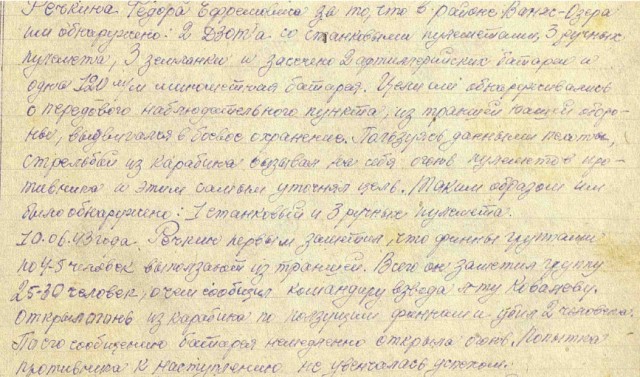 Речкина Федора Ефремовича за то, что в районе Ванж-Озера
им обнаружено: 2 ДЗОТ'а со станковыми пулеметами, 3 ручных
пулемета, 3 землянки и засечено 2 артиллерийских батареи и
одна 120 м/м минометная батарея. Цели им обнаруживались
с передового наблюдательного пункта, из траншей нашей оборо-
ны, выдвигался в боевое охранение. Пользуясь данными пехоты,
стрельбой из карабина вызывал на себя огонь пулеметов про-
тивника и этим самым уточнял цель. Таким образом им
было обнаружено: 1 станковый и 3 ручных пулемета.
10.06.43 года. Речкин первым заметил, что финны группами
по 4-5 человек выползают из траншей. Всего он заметил группу
25-30 человек, о чем сообщил командиру взвода л-ту Ковалеву.
Открыл огонь из карабина по ползущим финнам и убил 2 человека.
По его сообщению батарея немедленно открыла огонь. Попытка
противника к наступлению не увенчалась успехом.